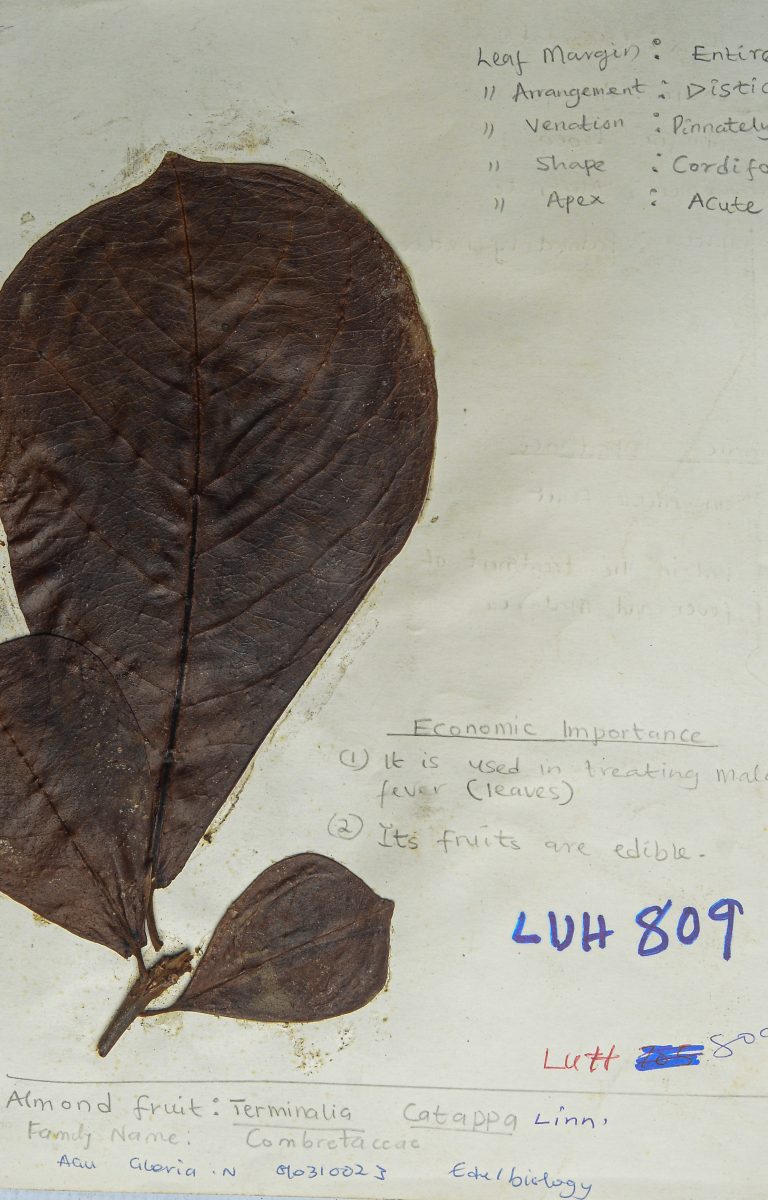 Leaf Margin : Entire
" Arrangement : Distic
" Venation : Pinnately
" Shape : Cordifo
" Apex : Acute
Economic Importance
(1) It is used in treating mala
fever (leaves)
(2) Its fruits are edible.
LUH 809
LUH 809
Almond fruit : Terminalia Catappa Linn.
Family Name: Combretaceae
Gloria .N Edu/biology